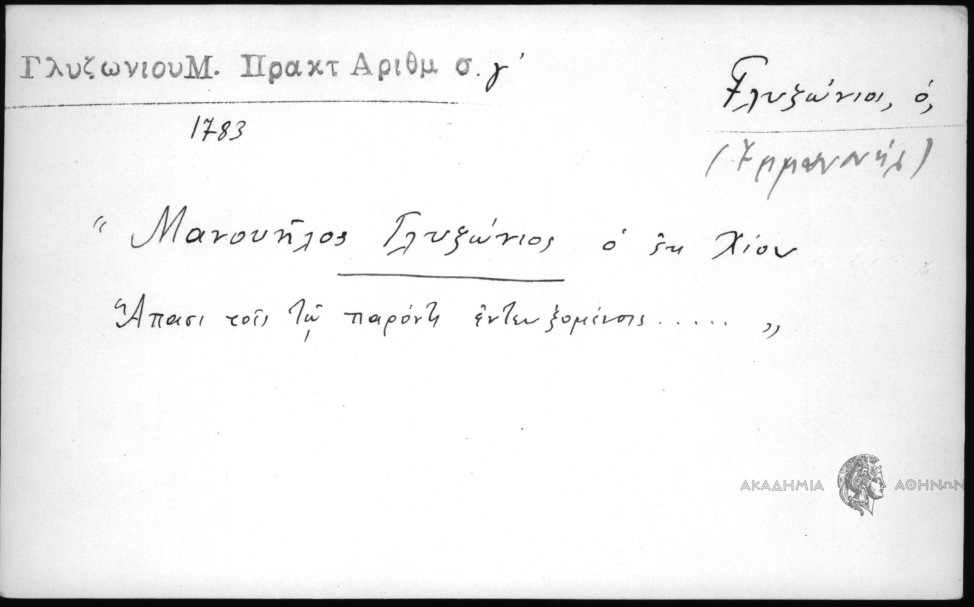 Γλυζωνιου Μ. Πρακτ Αριθμ σ. γ'
1783
Γλυζώνιος, ό,
" Μανουῆλος Γλυζώνιος ὁ ἐκ Χίου
Ἅπασι τοῖς τῷ παρόντι ἐντευξομένοις ..... "
ΑΚΑΔΗΜΙΑ ΑΘΗΝΩΝ